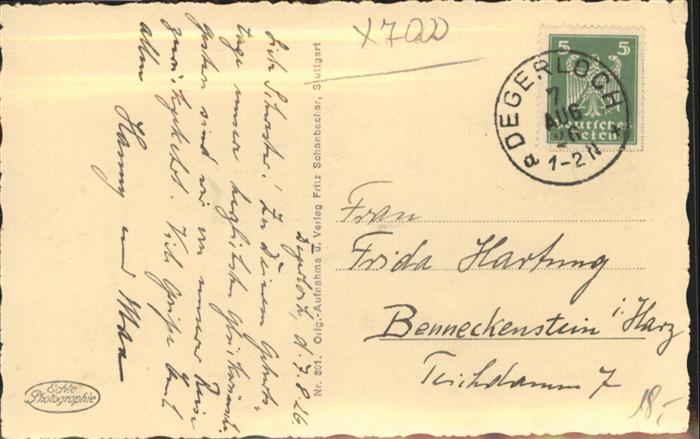 X7QD
Degerloch, d. 7.8.26.
Liebe Schwester! Zu Deinem Geburts-
tage unsere herzlichsten Glückwünsche.
Gestern sind wir von unserer Reise
zurückgekehrt. Viele Grüße Euch
allen
Hanny und Max
Nr. 801. Orig.-Aufnahme u. Verlag Fritz Schanbacher, Stuttgart
Echte
Photographie
5 5
Deutsches
Reich
DEGERLOCH
7
AUG
26
1-2 N
a
Frau
Frida Hartung
Benneckenstein i. Harz
Teichdamm 7
18.-